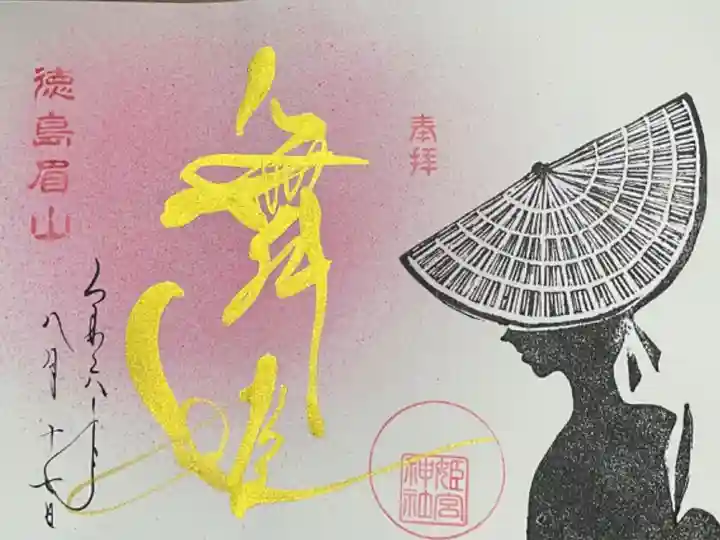 奉拝
舞姫
徳島眉山
令和六年
八月十七日
姫宮
神社